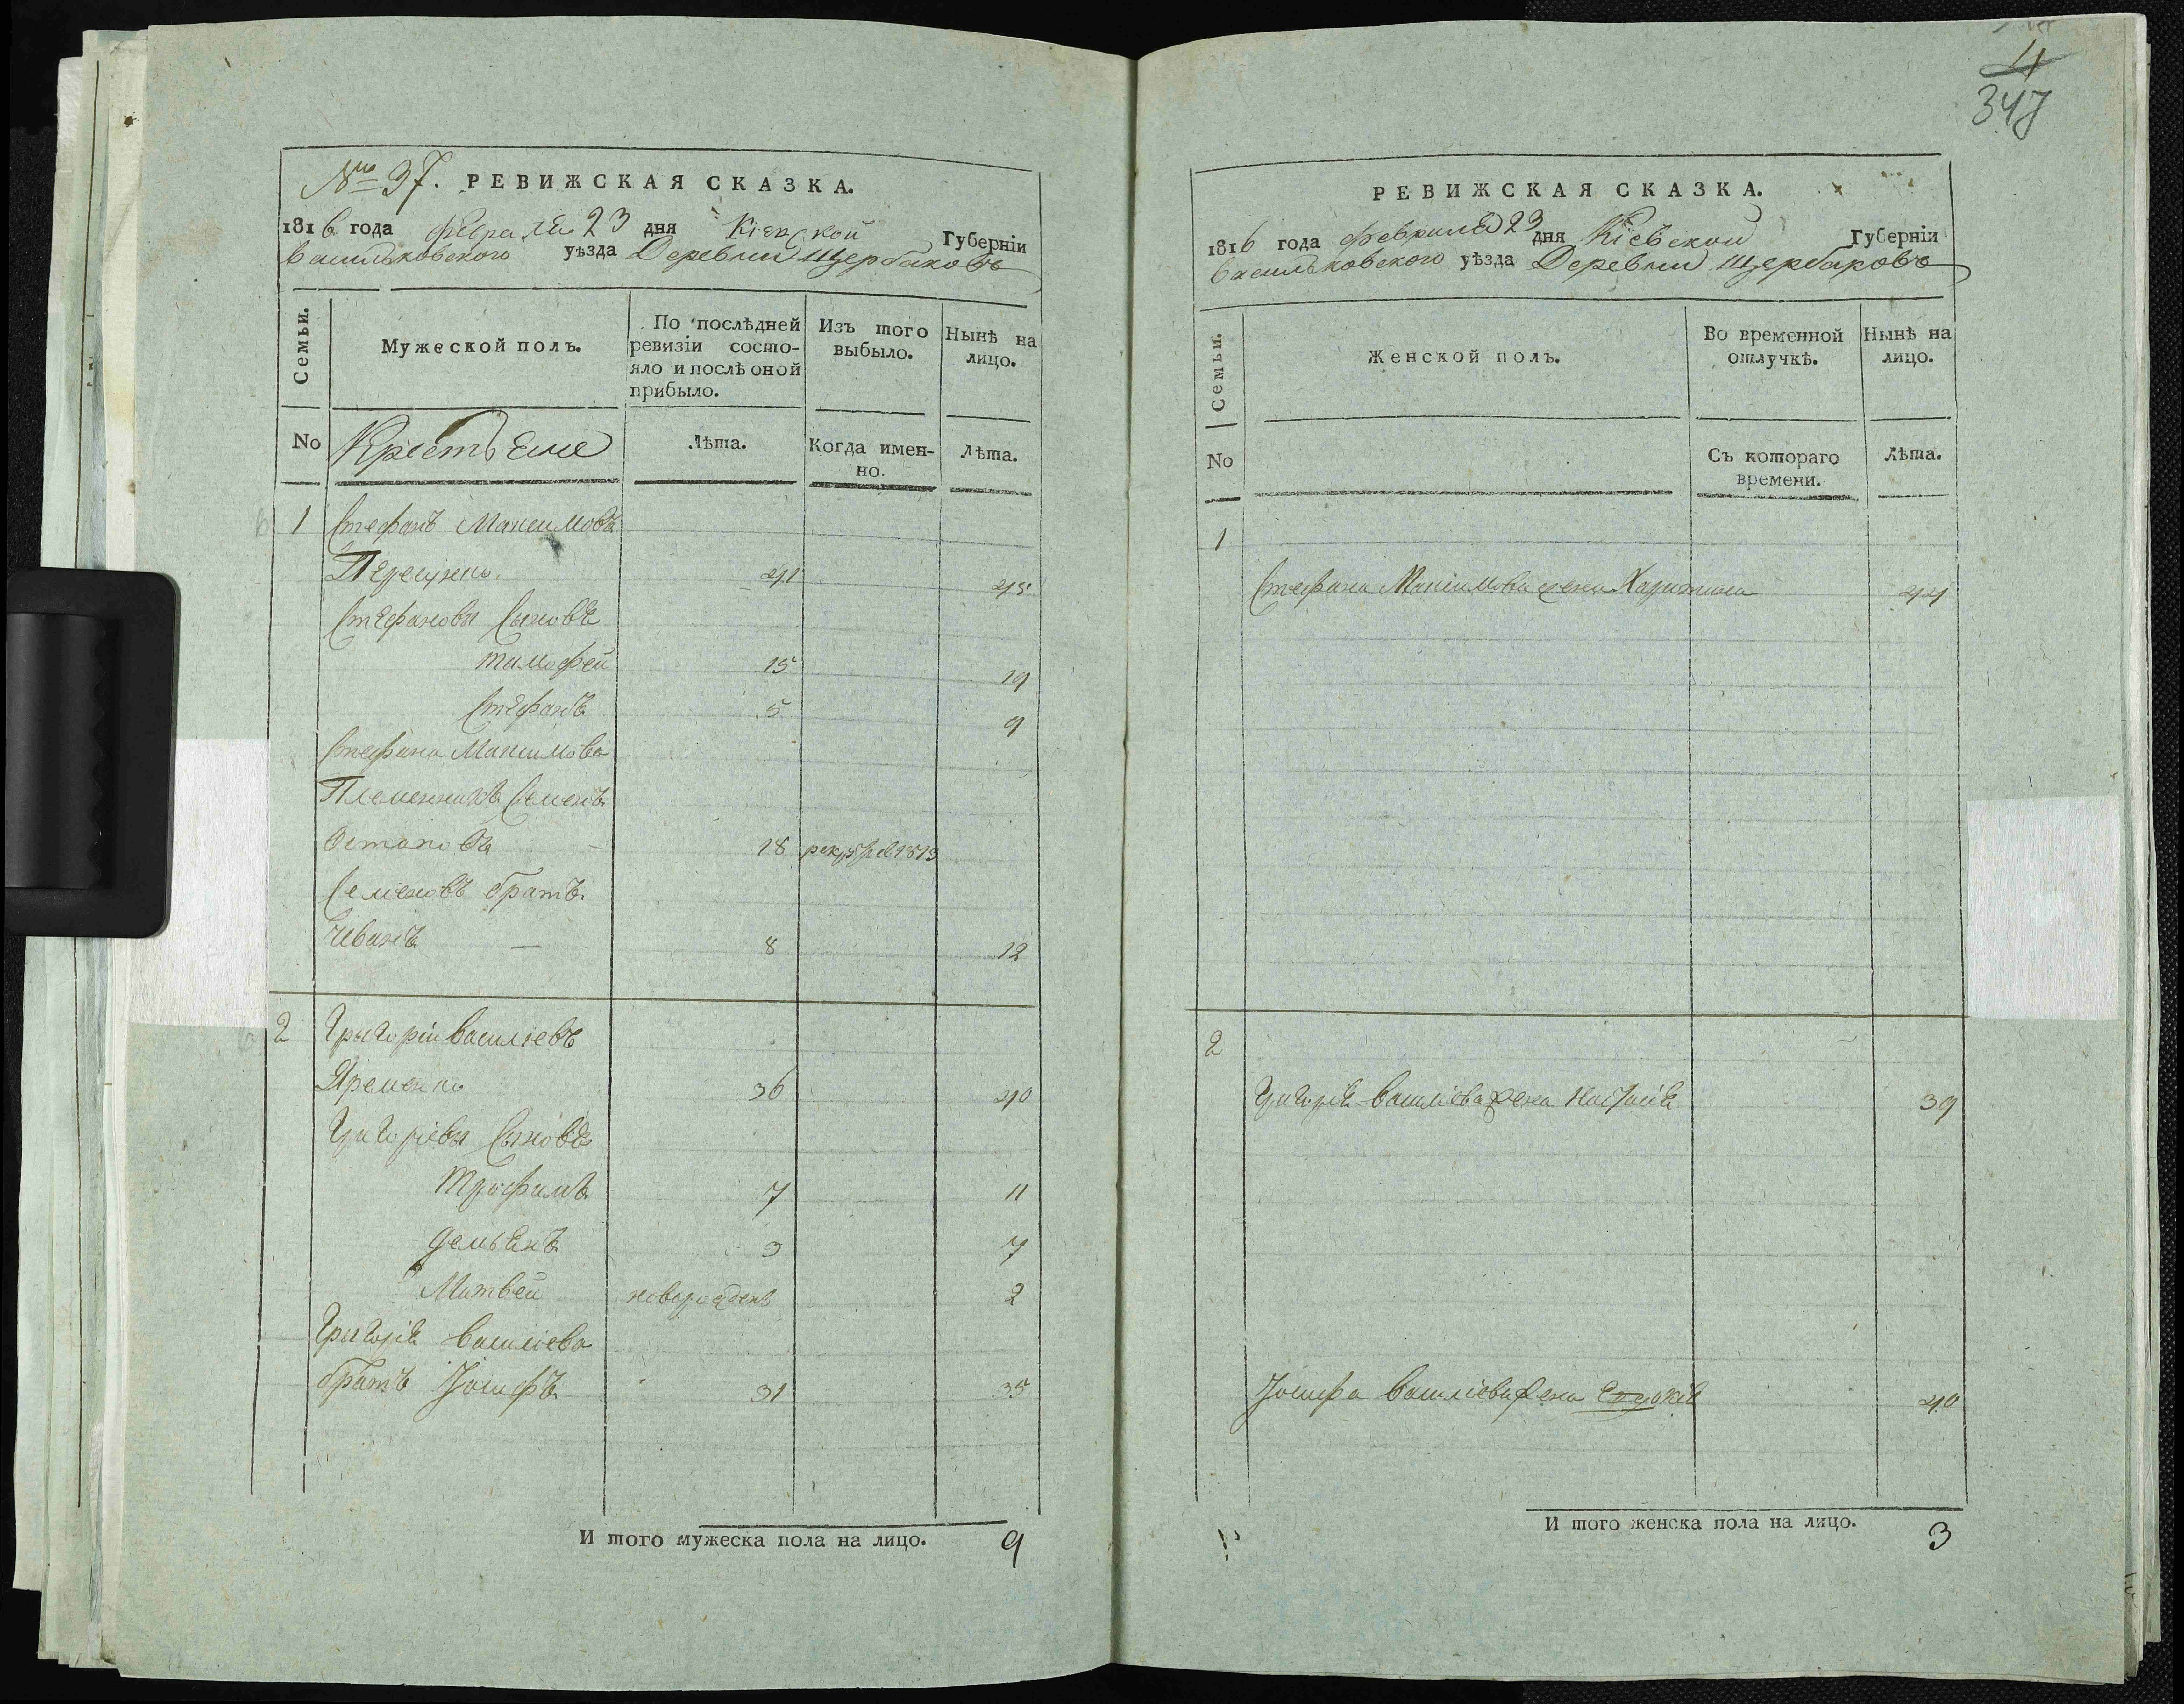 4
347
№ 37. РЕВИЖСКАЯ СКАЗКА.
1816 года февраля 23 дня Кіевской Губерніи
васильковского уѣзда Деревни Щербаковъ
Семьи.
Мужеской полъ.
По послѣдней ревизіи состо-
яло и послѣ оной
прибыло.
Изъ того
выбыло.
Нынѣ на
лицо.
No
Крестьяне
Лѣта.
Когда имен-
но.
Лѣта.
1 Стефанъ Максимовъ
41 45
Стефановы Сыновя
тимофей 15 19
Стефанъ 5 9
Стефана Максимова
Племенникъ Семенъ
Остаповъ 18 1813
Семеновъ братъ
Иванъ 8 12
2 Григорій василіевъ
Яременко 36 40
Григоріевы Сыновя
Трофимъ 7 11
демьянъ 3 7
Матвей новорожденъ 2
Григорія василіева
братъ Іосифъ 31 35
И того мужеска пола на лицо. 9
РЕВИЖСКАЯ СКАЗКА.
1816 года февраля 23 дня Кіевской Губерніи
васильковского уѣзда Деревни Щербаковъ
Семьи.
Женской полъ.
Во временной
отлучкѣ.
Нынѣ на
лицо.
No
Съ котораго
времени.
Лѣта.
1
Стефана Максимова жена Харитина 44
2
Григорія василіева жена Настасія 39
Іосифа василіева жена 40
И того женска пола на лицо. 3